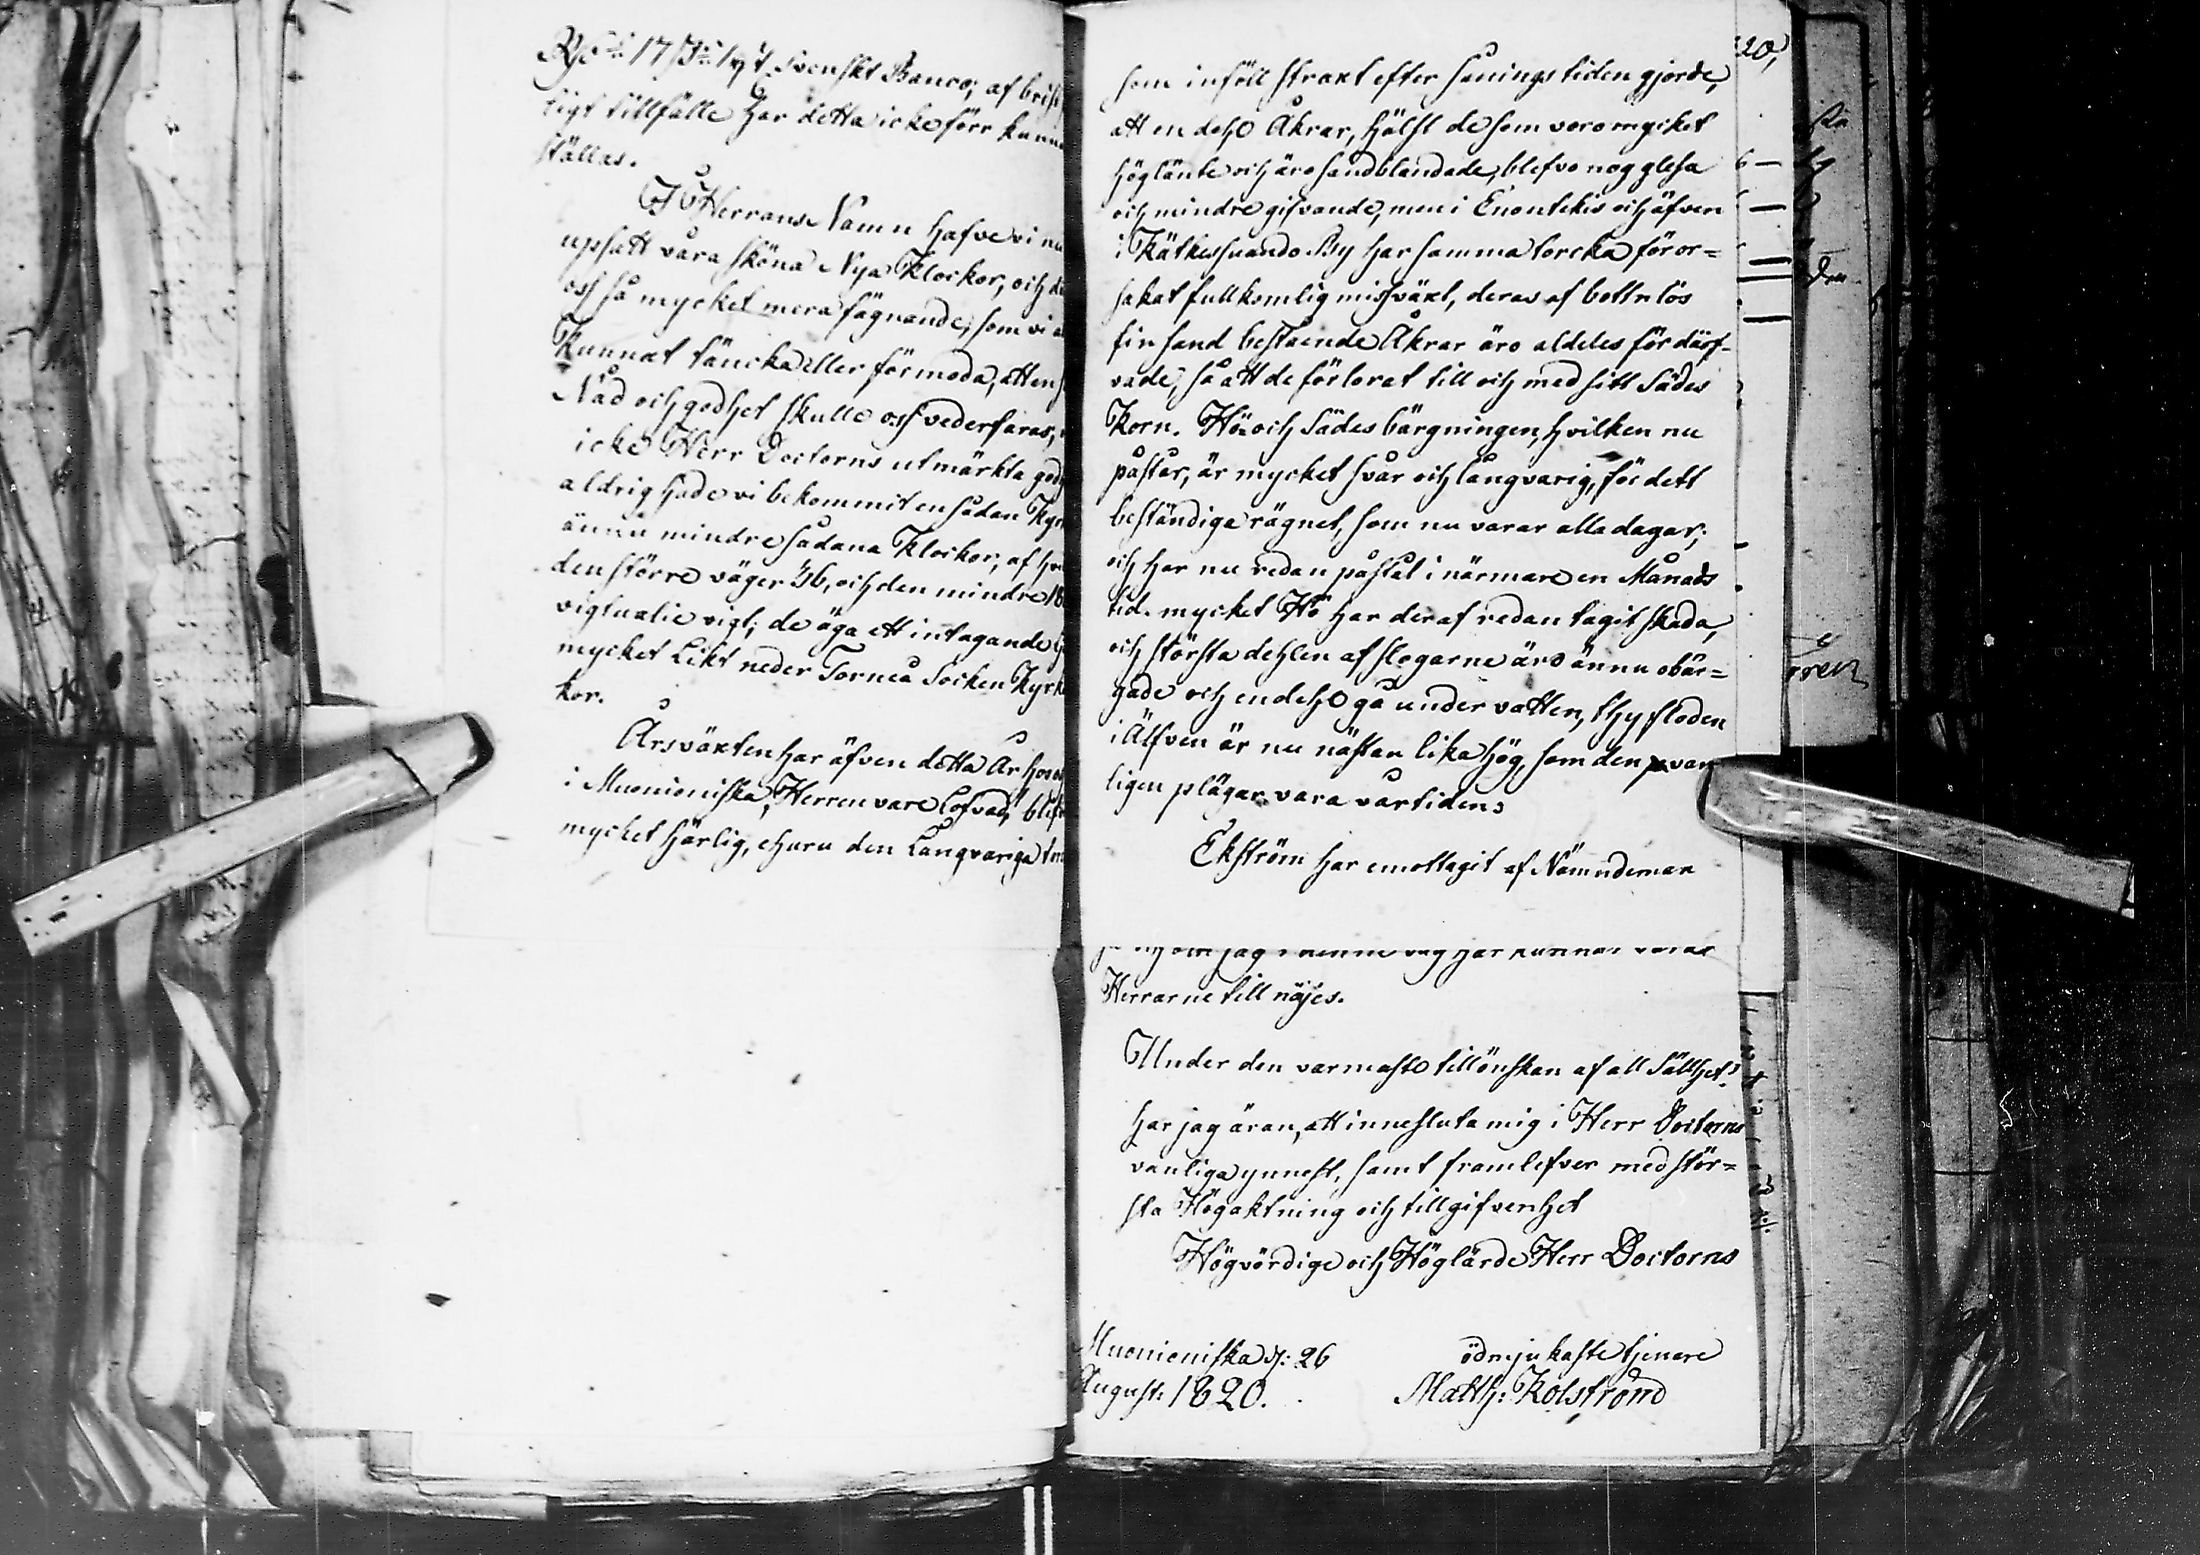 17 svenskt Banco; af brist
ligt tillfälle har detta icke förr kunna
ställas.
I Herrans Namn hafve vi nu
upsatt våra sköna Nya Klockor, och
oss så mycket mera fägnande, som vi
Kunnat täncka eller förmoda, att en
Nåd och godhet skulle oss vederfaras,
icke Herr Doctorns utmärkta god
aldrig hade vi bekommit en sådan Kyr
ännu mindre sådana Klockor, af hv
den större väger 36, och den mindre 18
vigtualie vigt; de äga ett intagande
mycket Likt neder Torneå Socken Kyrk
kor.
Årsväxten har äfven detta År
i Muonioniska, Herren vare Lofvad, blef
mycket härlig, ehuru den Långvariga
20,
som inföll straxt efter såningstiden gjorde,
att en dehl Åkrar, hälst de som voro mycket
höglänte och äro sandblandade, blefvo nog glesa
och mindre gifvande, men i Enontekis och äfven
i Kätkessuando By har samma torcka föror=
sakat fullkomlig missväxt, deras af bottnlös
fin sand bestående Åkrar äro aldeles fördärf-
vade, så att de förlorat till och med sitt Sädes
Korn. Hö= och Sädes bärgningen, hvilken nu
påstår, är mycket svår och långvarig, för dett
beständiga rägnet, som nu varar alla dagar;
och har nu redan påstat i närmare en Månads
tid. mycket Hö har deraf redan tagit skada,
och största dehlen af slogarne äro ännu obär=
gade och en dehl gå under vatten, thy floden
i Älfven är nu nästan lika hög, som den van
ligen plägar vara vartidens
Ekström har emottagit af Nämndeman
jag i denne väg har kunnat vara
Herrarne till nöjes.
Under den varmaste tillönskan af all Sällhet
har jag äran, att innesluta mig i Herr Doctorns
vanliga ynnest, samt framlefver med stör=
sta Högaktning och tillgifvenhet
Högvördige och Höglärde Herr Doctorns
Muonioniska d: 26
August: 1820.
ödmjukaste tjenare
Matth: Kolström